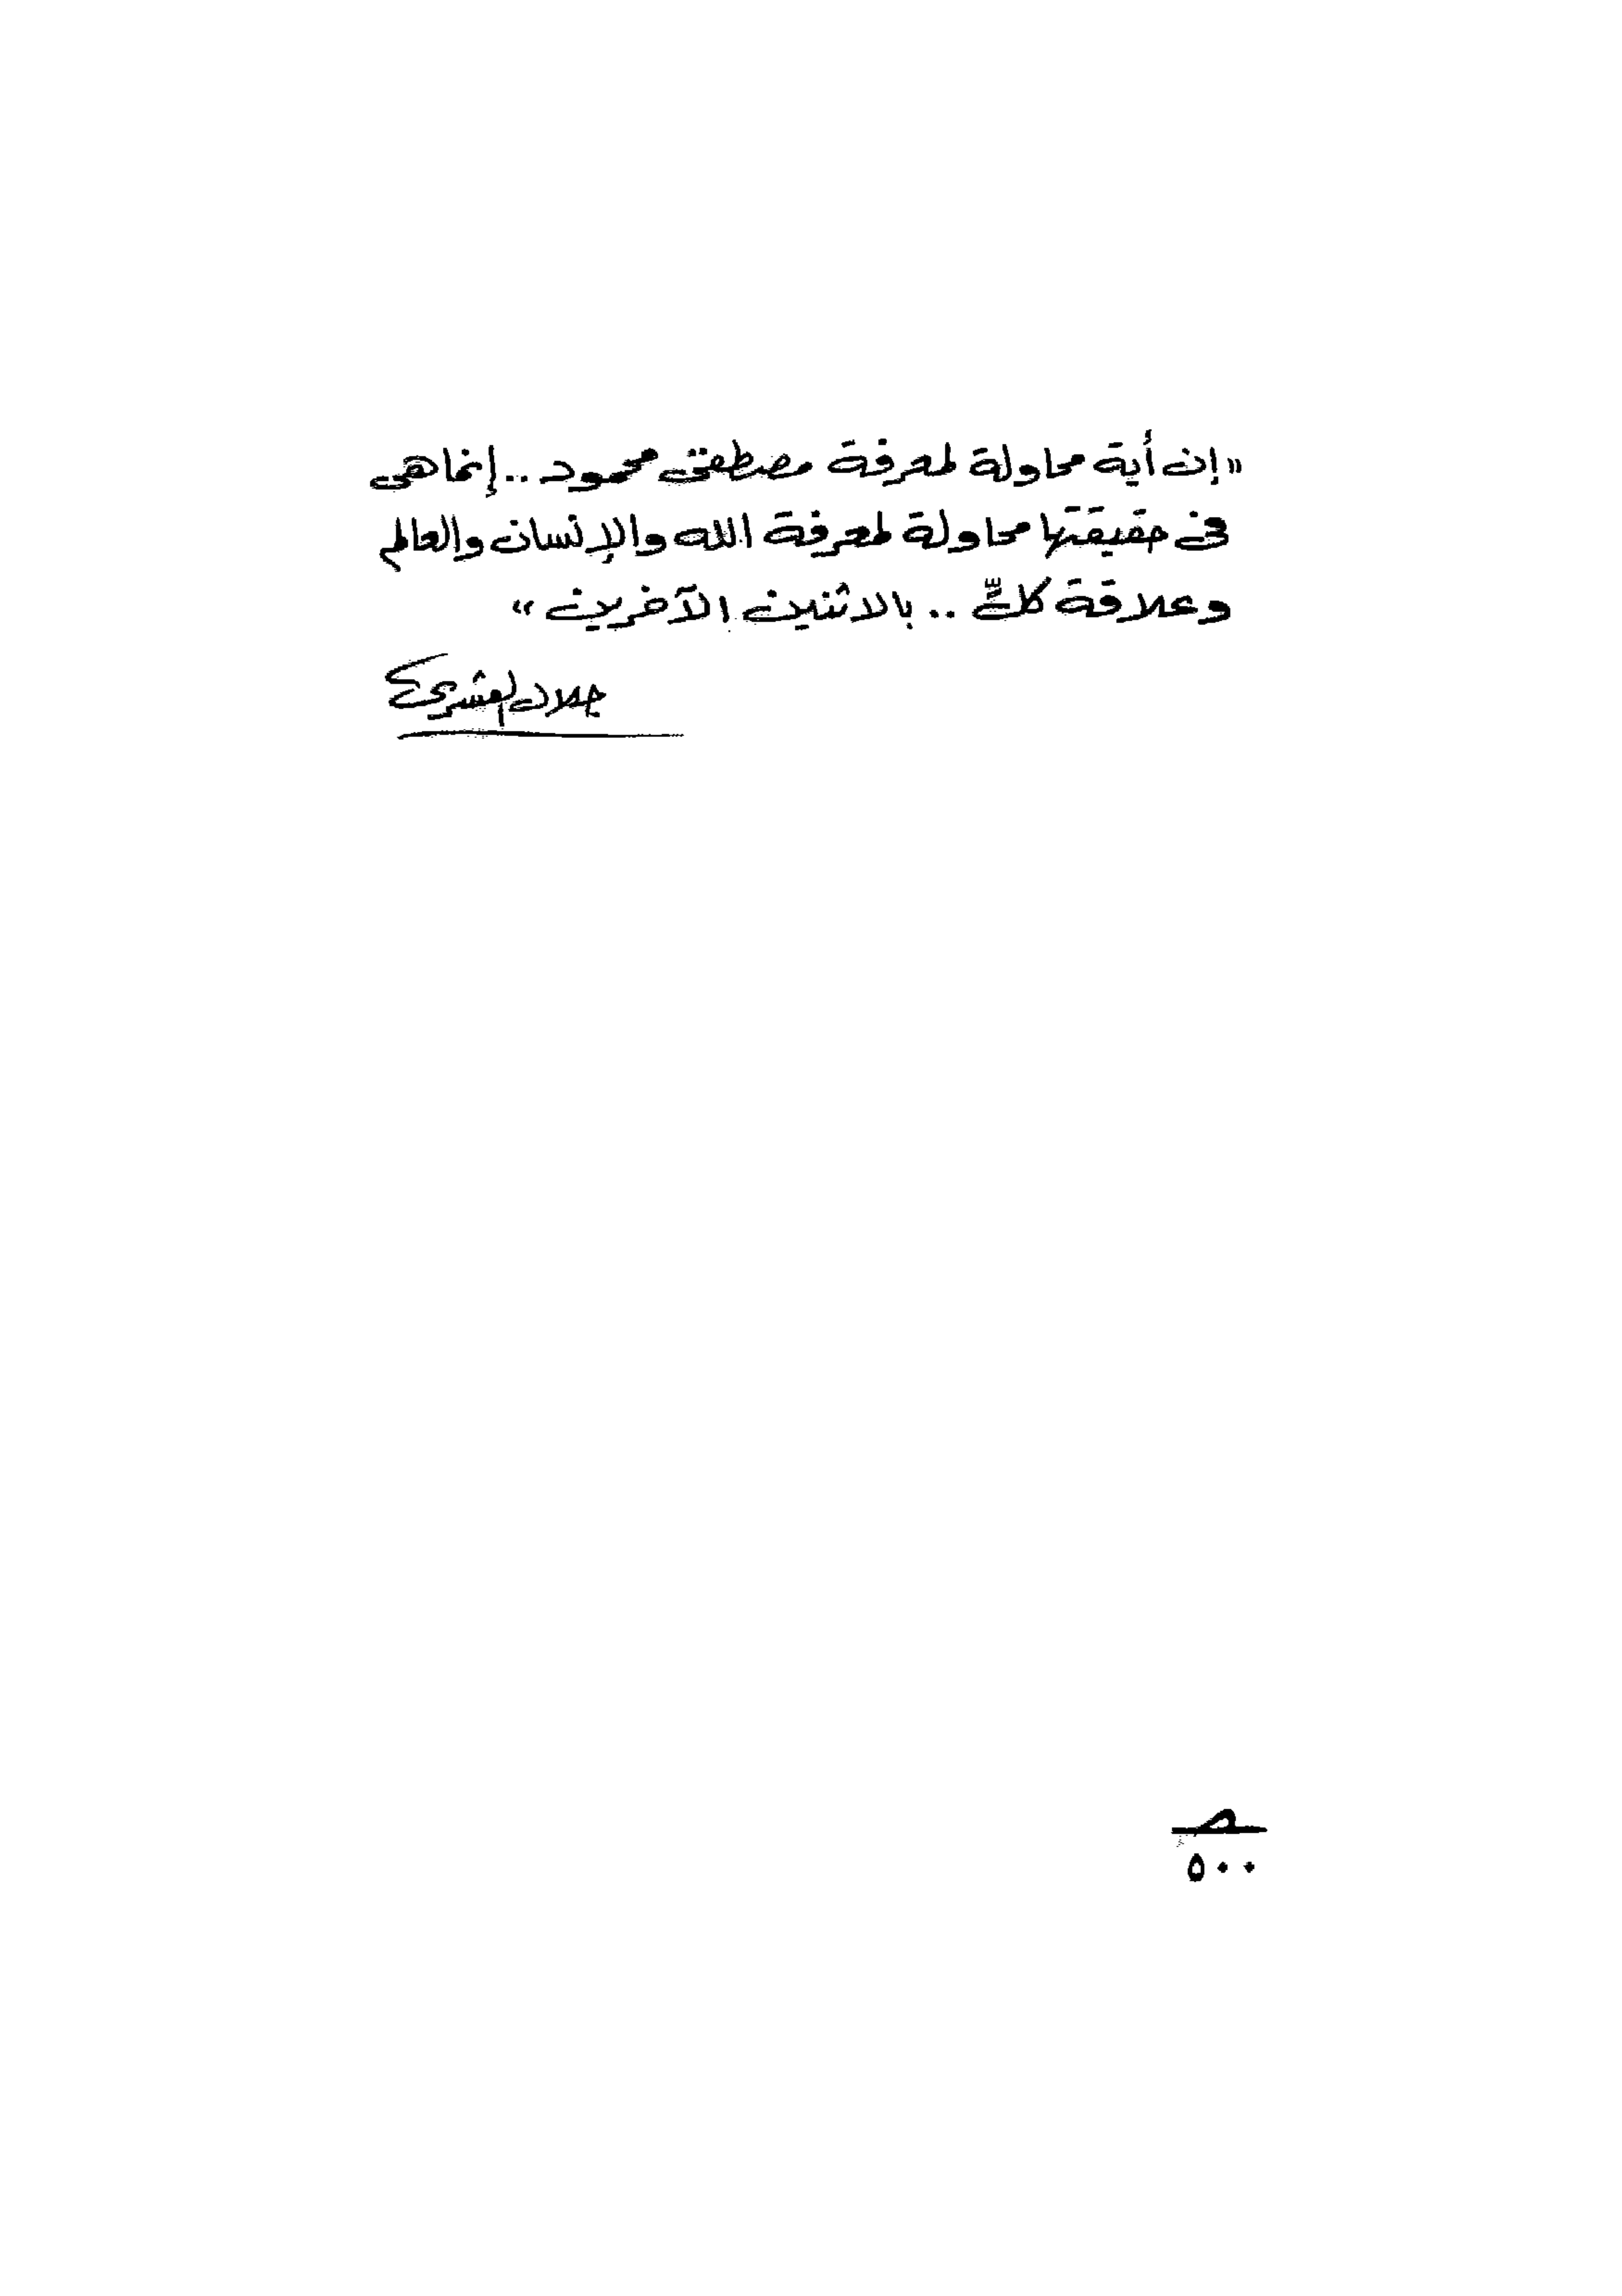 «إن أية محاولة لمعرفة مصطفى محمود .. إنما هى
فى حقيقتها محاولة لمعرفة الله والإنسان والعالم
وعلاقة كلٍّ .. بالاثنين الآخرين»
جلال العشرى
٥٠٠